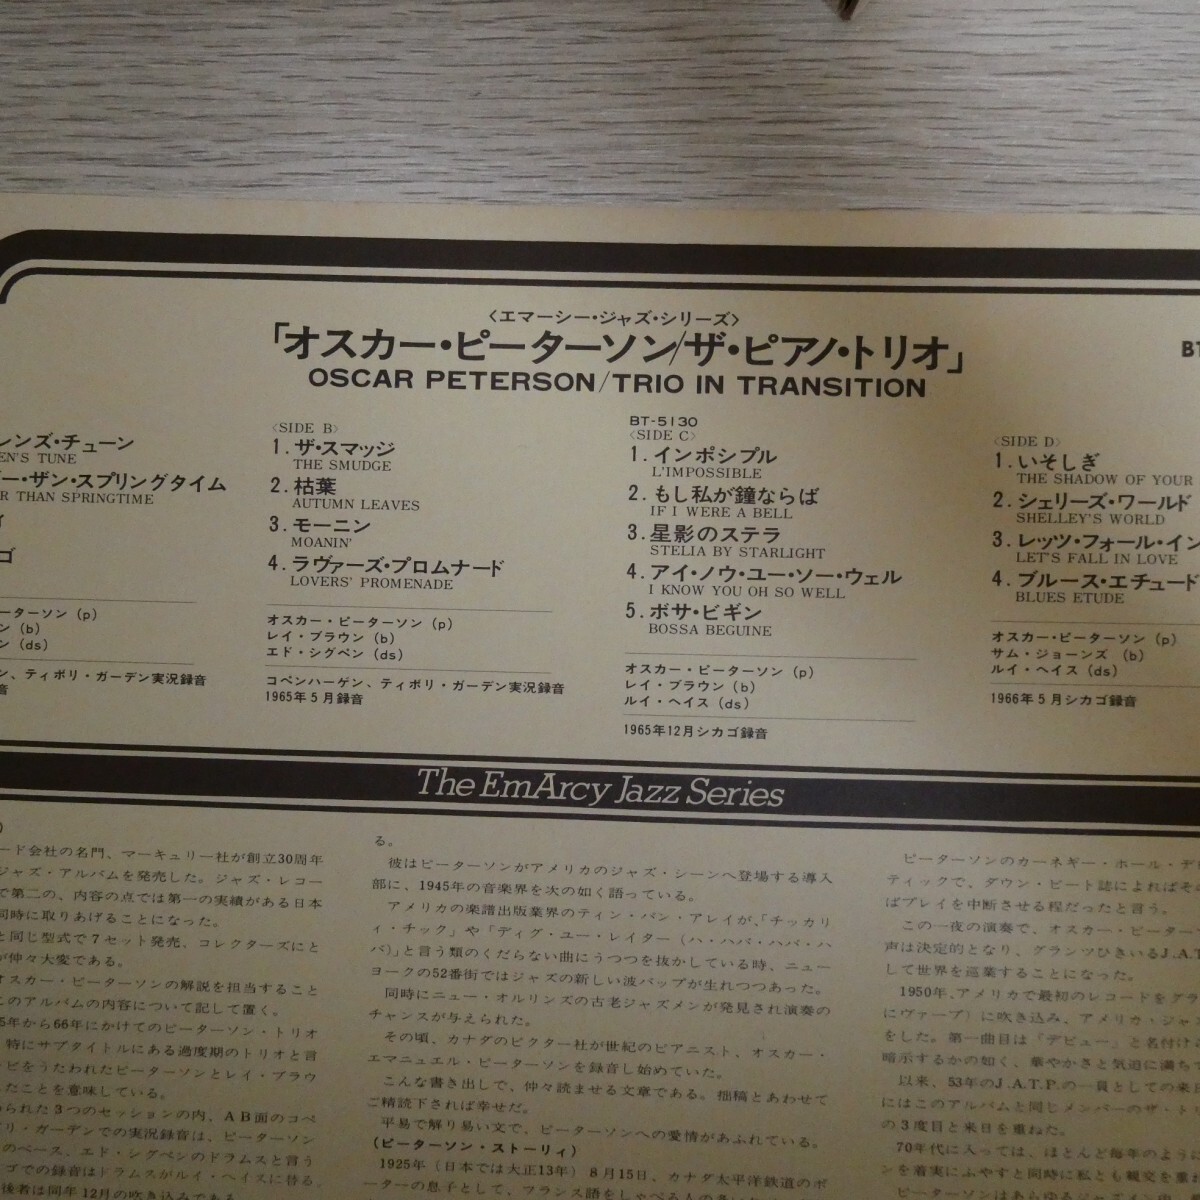 〈エマーシー・ジャズ・シリーズ〉
「オスカー・ピーターソン/ザ・ピアノ・トリオ」
OSCAR PETERSON/TRIO IN TRANSITION
BT
レンズ・チューン
EN'S TUNE
ー・ザン・スプリングタイム
R THAN SPRINGTIME
ゴ
ーターソン (p)
ン (b)
ン (ds)
ン、ティボリ・ガーデン実況録音
音
〈SIDE B〉
1. ザ・スマッジ
THE SMUDGE
2. 枯葉
AUTUMN LEAVES
3. モーニン
MOANIN'
4. ラヴァーズ・プロムナード
LOVERS' PROMENADE
オスカー・ピーターソン (p)
レイ・ブラウン (b)
エド・シグペン (ds)
コペンハーゲン、ティボリ・ガーデン実況録音
1965年5月録音
BT-5130
〈SIDE C〉
1. インポシブル
L'IMPOSSIBLE
2. もし私が鐘ならば
IF I WERE A BELL
3. 星影のステラ
STELIA BY STARLIGHT
4. アイ・ノウ・ユー・ソー・ウェル
I KNOW YOU OH SO WELL
5. ボサ・ビギン
BOSSA BEGUINE
オスカー・ピーターソン (p)
レイ・ブラウン (b)
ルイ・ヘイス (ds)
1965年12月シカゴ録音
〈SIDE D〉
1. いそしぎ
THE SHADOW OF YOUR
2. シェリーズ・ワールド
SHELLEY'S WORLD
3. レッツ・フォール・イン
LET'S FALL IN LOVE
4. ブルース・エチュード
BLUES ETUDE
オスカー・ピーターソン (p)
サム・ジョーンズ (b)
ルイ・ヘイス (ds)
1966年5月シカゴ録音
The EmArcy Jazz Series
ード会社の名門、マーキュリー社が創立30周年
ジャズ・アルバムを発売した。ジャズ・レコー
で第二の、内容の点では第一の実績がある日本
同時に取りあげることになった。
と同じ型式で7セット発売、コレクターズにと
が仲々大変である。
オスカー・ピーターソンの解説を担当すること
このアルバムの内容について記して置く。
5年から66年にかけてのピーターソン・トリオ
特にサブタイトルにある過度期のトリオと言
ビをうたわれたピーターソンとレイ・ブラウ
たことを意味している。
られた3つのセッションの内、AB面のコペ
リ・ガーデンでの実況録音は、ピーターソン
のベース、エド・シグペンのドラムスと言う
ゴでの録音はドラムスがルイ・ヘイスに替る。
後者は同年12月の吹き込みである。
る。
彼はピーターソンがアメリカのジャズ・シーンへ登場する導入
部に、1945年の音楽界を次の如く語っている。
アメリカの楽譜出版業界のティン・パン・アレイが、「チッカリ
ィ・チック」や「ディグ・ユー・レイター（ハ・ハバ・ハバ・ハ
バ）」と言う類のくだらない曲にうつつを抜かしている時、ニュー
ヨークの52番街ではジャズの新しい波バップが生れつつあった。
同時にニュー・オルリンズの古老ジャズメンが発見され演奏の
チャンスが与えられた。
その頃、カナダのビクター社が世紀のピアニスト、オスカー・
エマニュエル・ピーターソンを録音し始めていた。
こんな書き出しで、仲々読ませる文章である。拙稿とあわせて
ご精読下されば幸せだ。
平易で解り易い文で、ピーターソンへの愛情があふれている。
（ピーターソン・ストーリィ）
1925年（日本では大正13年）8月15日、カナダ太平洋鉄道のポ
ーターの息子として、フランス語をしゃべる人の多い
ピーターソンのカーネギー・ホール・デ
ティックで、ダウン・ビート誌によればその
ばプレイを中断させる程だったと言う。
この一夜の演奏で、オスカー・ピーター
声は決定的となり、グランツひきいるJ.A.T
して世界を巡業することになった。
1950年、アメリカで最初のレコードをグラ
にヴァーブ）に吹き込み、アメリカ・ジャズ
をした。第一曲目は「デビュー」と名付け
暗示するかの如く、華やかさと気迫に満ち
以来、53年のJ.A.T.P.の一員としての来日
にはこのアルバムと同じメンバーのザ・ト
の3度目と来日を重ねた。
70年代に入っては、ほとんど毎年のように
ンを着実にふやすと同時に私とも親交を重